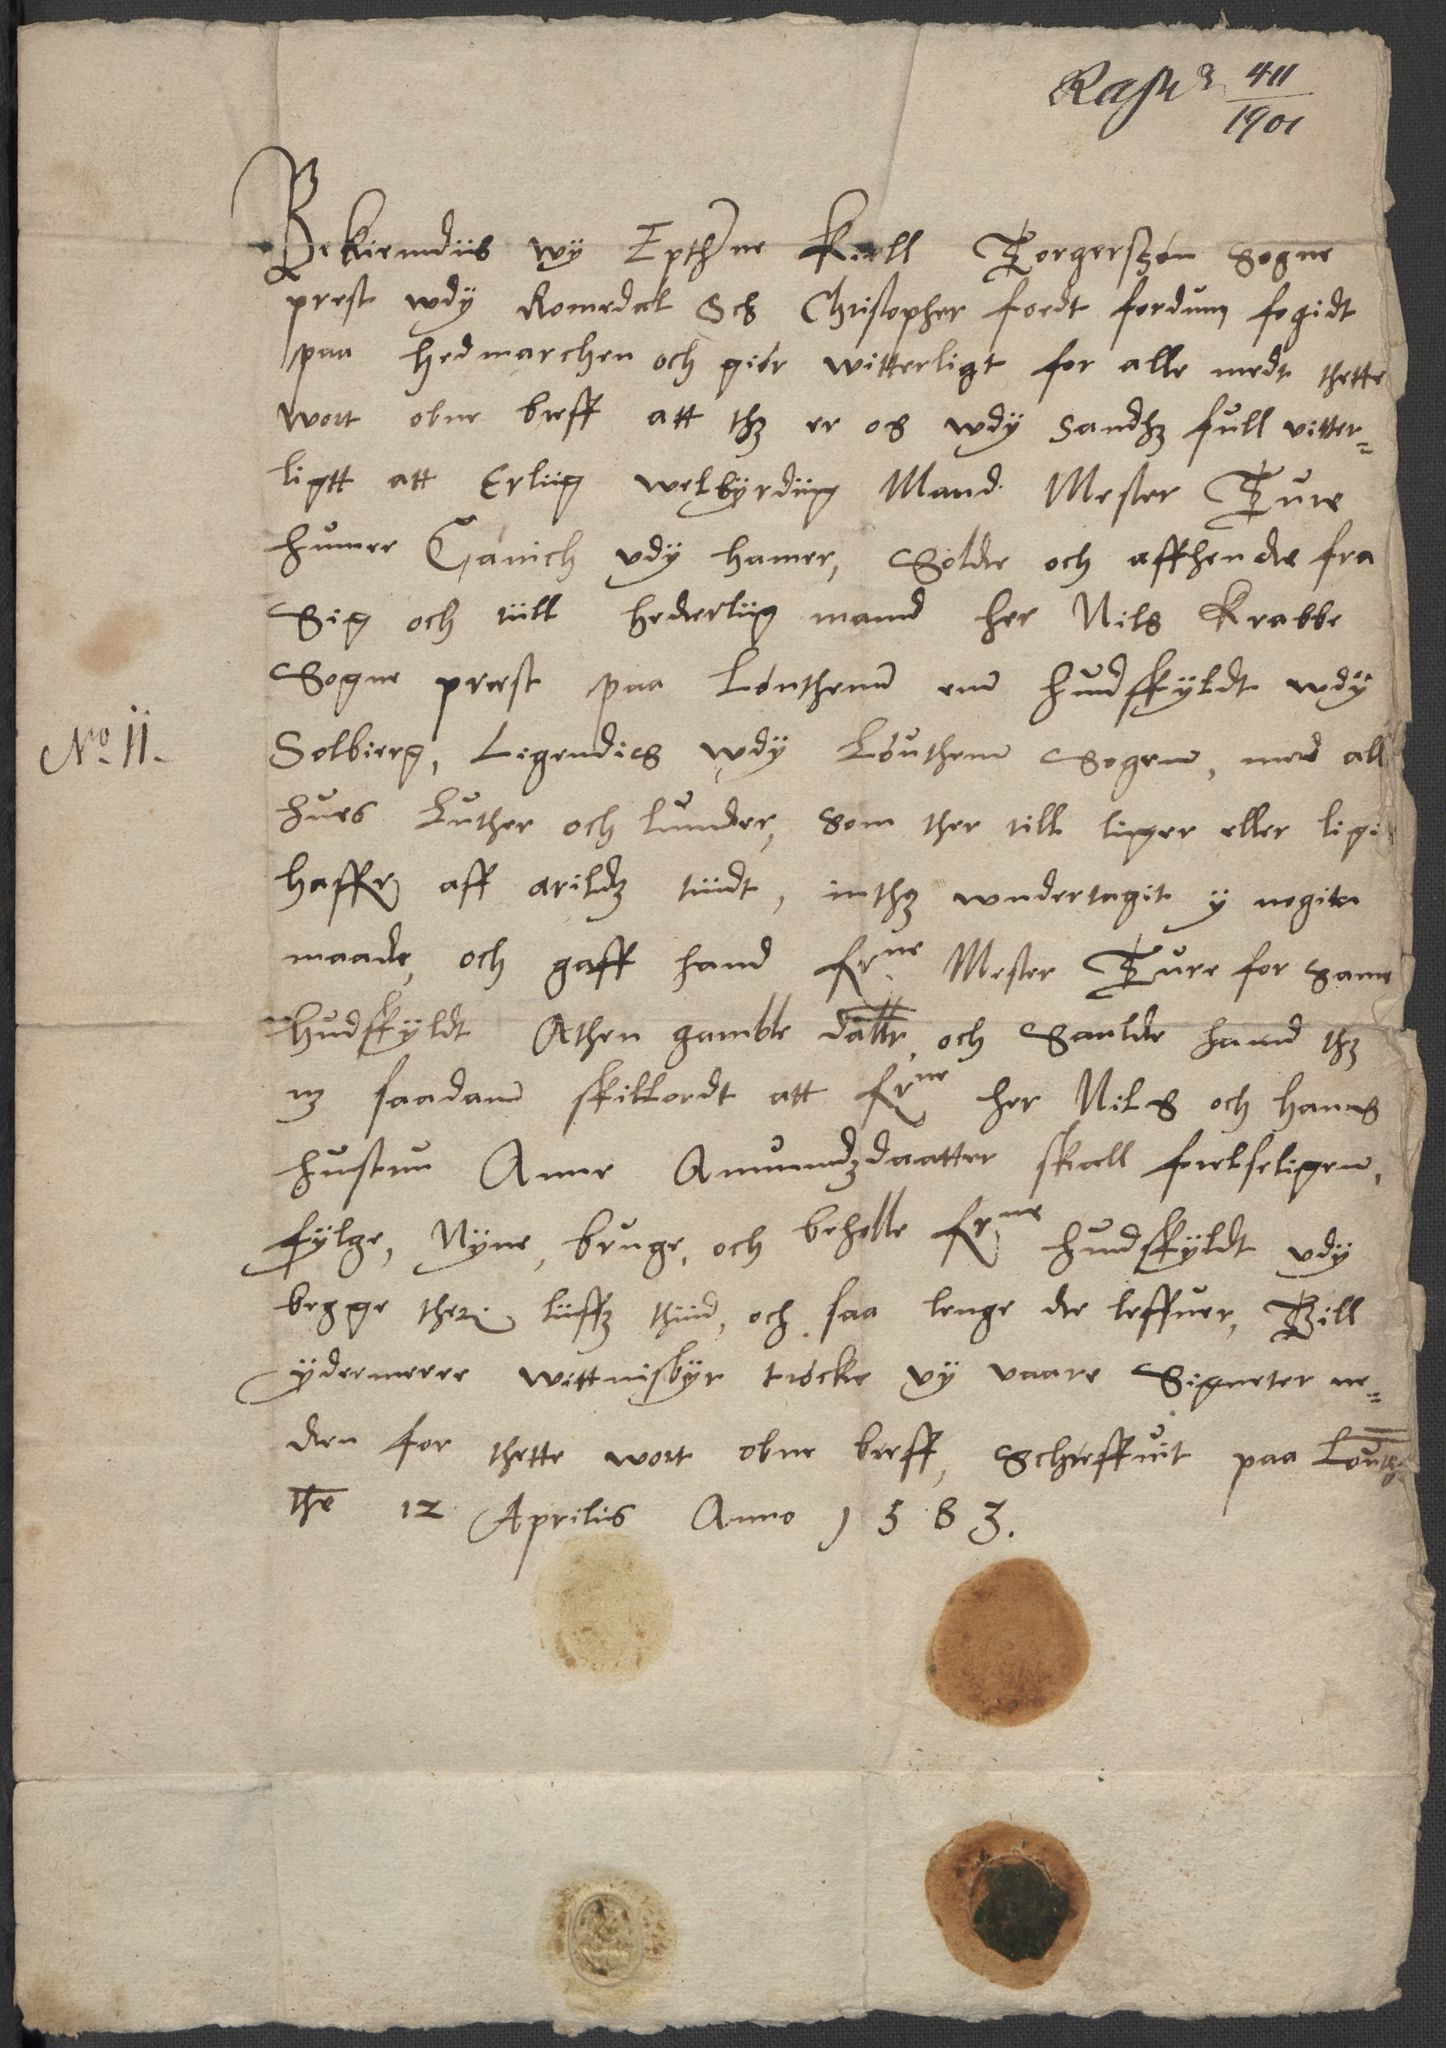 411
1901
Bekienndiis wy Epthne Kield Torgerszön Sogne
prest wdy Romedal Sch Christopher foedt fordum fogidt
paa Hedmarchen och giör witterligt for alle medt thette
wort obne breff att thz er os wdy Sandhz full vitter=
ligtt att Erliig welbyrdiig Mand Mester Ture
Hunner Canich vdy hamer, Solde och affhende fra
Sig och tiill hederliig mand her Nils Krabbe
Sogne prest paa Löuthenn enn hudskyldt wdy
Solbierg, Ligendies wdy Löuthenn Sogenn, med all
hues Luther och lunder, som ther till liger eller ligi
haffr aff arildz tiidt, inthz wndertagit y nogita
maade, och gaff hand frne Mester Ture for same
Hudskyldt Athen gamble dallr, och Saulde hand thz
m saadann skillordt att frne her Nils och hanns
hustru Anne Amundzdaatter skall frelseligenn,
fylge, Nyne, bruge, och beholle frne hudskyldt vdy
begge theri liiffz thiid, och saa lenge de leffuer, Till
ydermerre wittnisbyr tröcke vy vaare Signeter ne=
den for thette wort obne breff, Schreffuit paa Löuth
the 12 Aprilis Anno 1583.
No. 11.